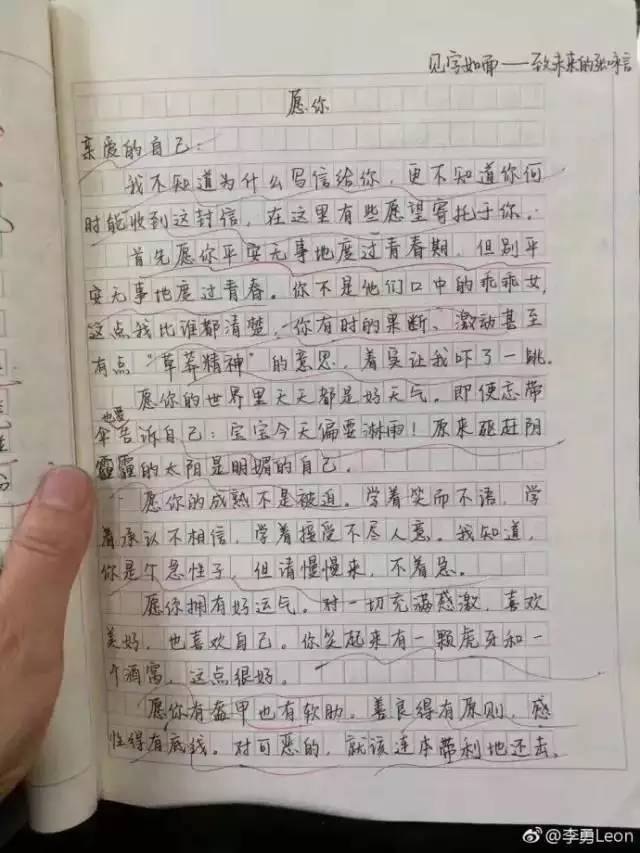 见字如面——致未来的张咏言
愿你
亲爱的自己：
我不知道为什么写信给你，更不知道你何
时能收到这封信，在这里有些愿望寄托于你。
首先愿你平安无事地度过青春期，但别平
安无事地度过青春。你不是他们口中的乖乖女，
这点我比谁都清楚，你有时的果断、激动甚至
有点“草莽精神”的意思，着实让我吓了一跳。
愿你的世界里天天都是好天气。即使忘带
也要
伞告诉自己：宝宝今天偏要淋雨！原来驱赶阴
霾的太阳是明媚的自己。
愿你的成熟不是被迫。学着笑而不语，学
着承认不相信，学着接受不尽人意。我知道，
你是个急性子，但请慢慢来，不着急。
愿你拥有好运气。对一切充满感激，喜欢
美好，也喜欢自己。你笑起来有一颗虎牙和一
个酒窝，这点很好。
愿你有盔甲也有软肋。善良得有原则，感
性得有底线。对可恶的，就该连本带利地还去。
@李勇Leon